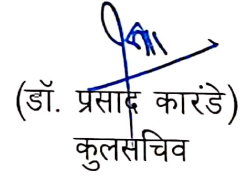 (डॉ. प्रसाद कारंडे)
कुलसचिव